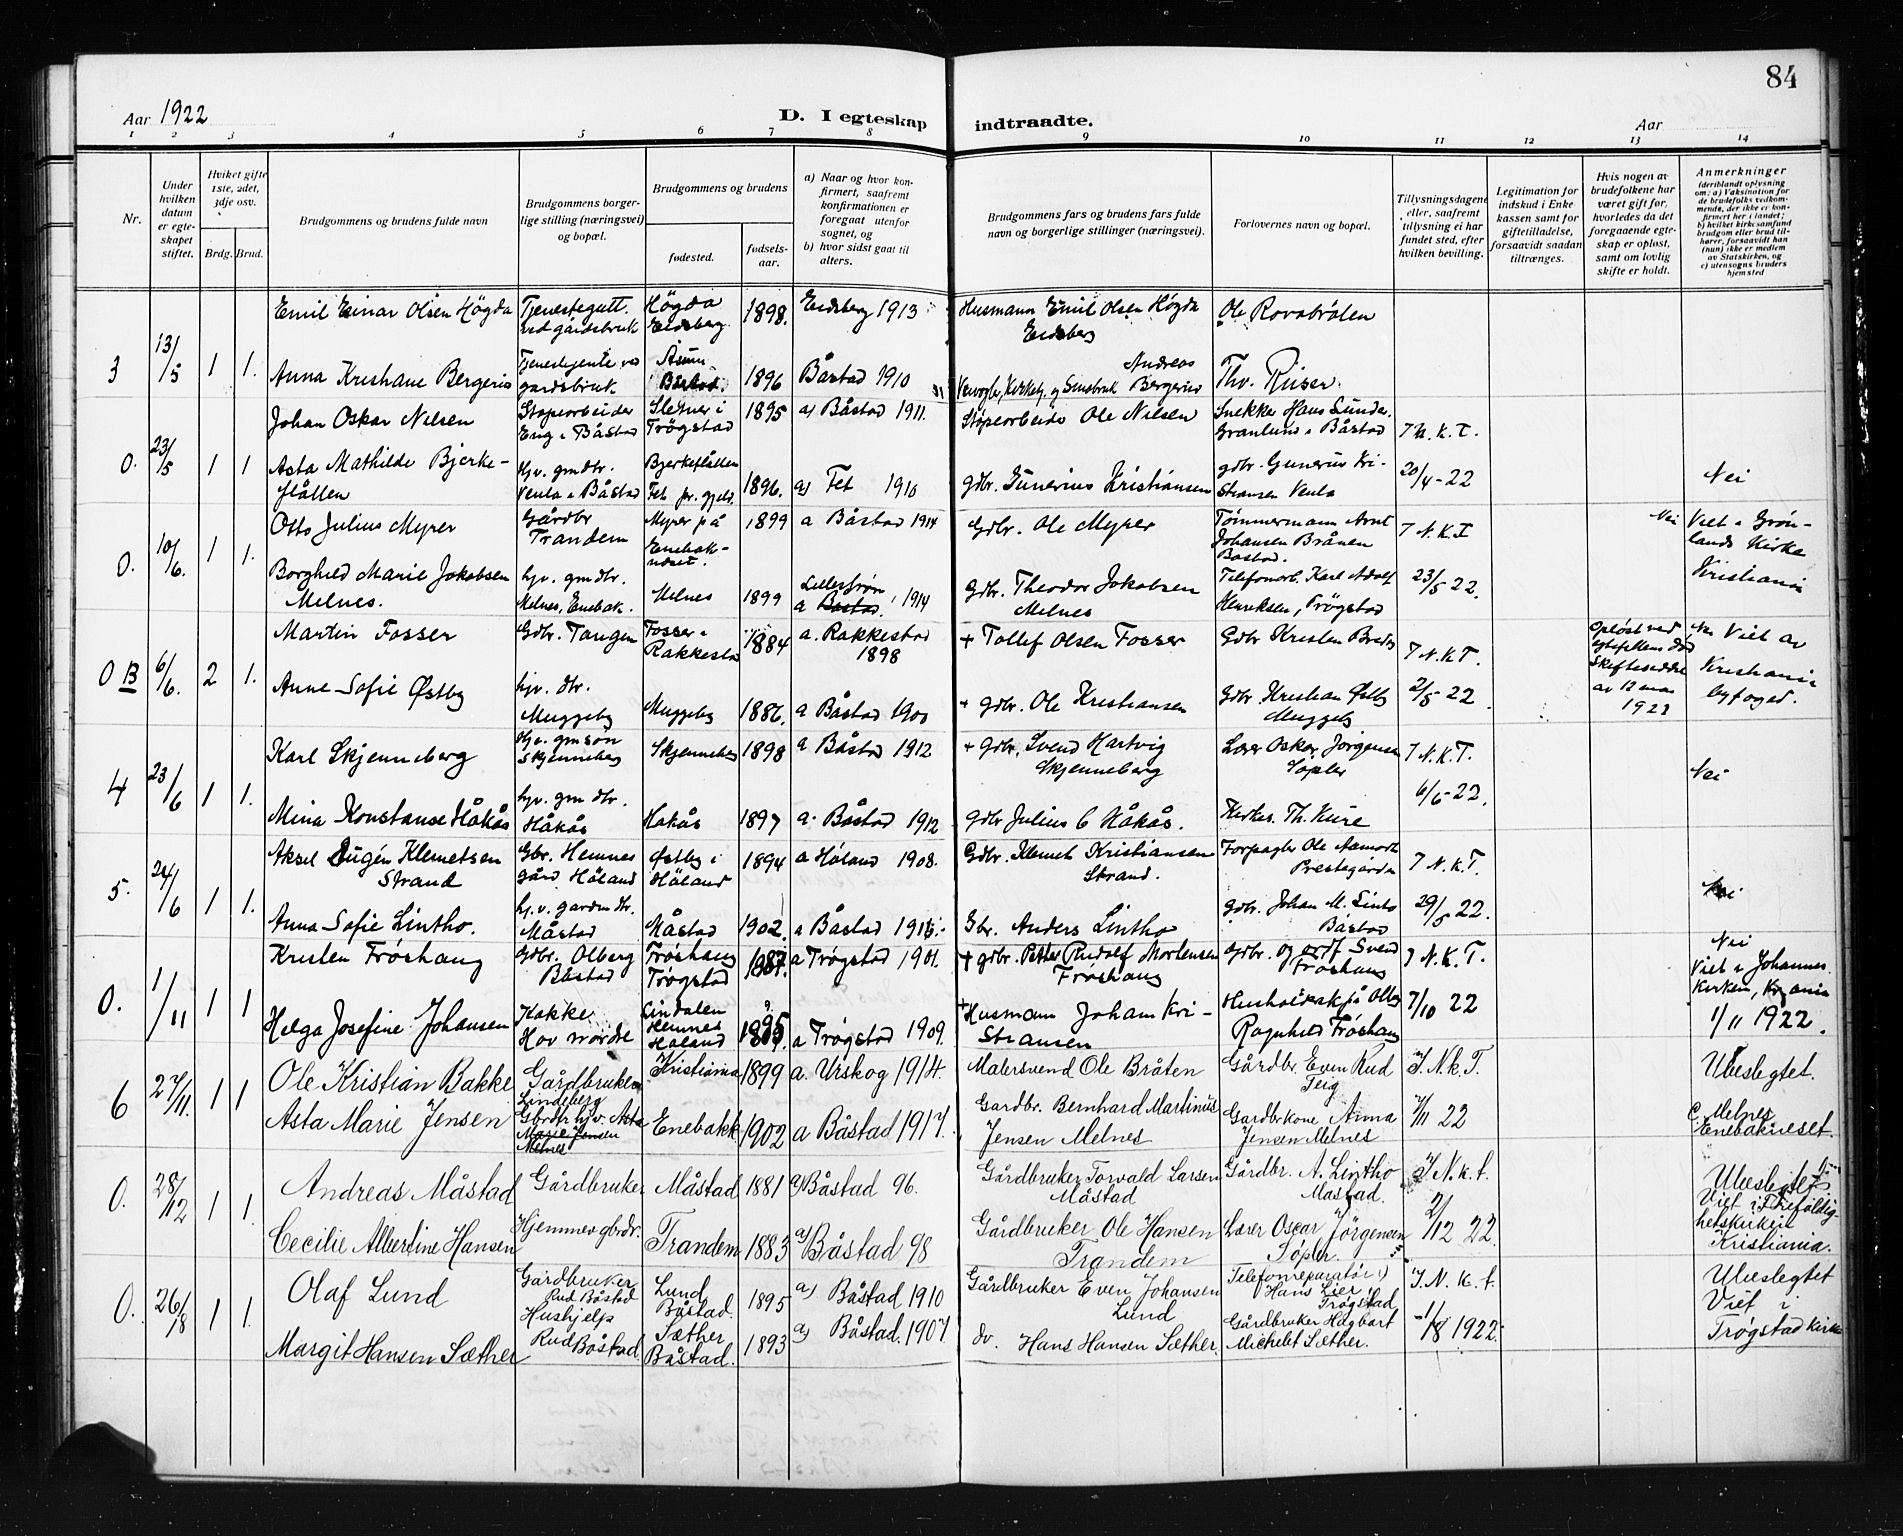 84
Aar 1922
D. I egteskap
indtraadte.
Aar
1 2 3 4 5 6 7 8 9 10 11 12 13 14
Nr.
Under hvilken datum er egteskapet stiftet.
Hvilket gifte 1ste, 2det, 3dje osv.
Brdg. Brud.
Brudgommens og brudens fulde navn
Brudgommens borgerlige stilling (næringsvei) og bopæl.
Brudgommens og brudens
fødested.
fødselsaar.
a) Naar og hvor konfirmert, saafremt konfirmationen er foregaat utenfor sognet, og
b) hvor sidst gaat til alters.
Brudgommens fars og brudens fars fulde navn og borgerlige stillinger (næringsvei).
Forlovernes navn og bopæl.
Tillysningsdagene eller, saafremt tillysning ei har fundet sted, efter hvilken bevilling.
Legitimation for indskud i Enkekassen samt for giftetilladelse, forsaavidt saadan tiltrænges.
Hvis nogen av brudefolkene har været gift før, hvorledes da det foregaaende egteskap er opløst, samt om lovlig skifte er holdt.
Anmerkninger
(deriblandt oplysning om: a) Vaksination for de brudefolks vedkommende, der ikke er konfirmert her i landet; b) hvilket kirkesamfund brudgom eller brud tilhører, forsaavidt han (hun) ikke er medlem av Statskirken, og c) utensogns bruders hjemsted
3 13/5 1 1.
Emil Einar Olsen Högda
Tjenestegutt. ved gårdsbruk
Högda Eidsberg.
1898.
Eidsberg 1913
Husmann Emil Olsen Högda Eidsberg
Ole
Anna Kristiane Bergerud
Tjenestejente ved gardsbruk.
Båstad.
1896
Båstad 1910
Andreas
Kirketj. og Småbruk
Thv. Riiser.
0. 23/5 1 1
Johan Oskar Nilsen
Støpearbeider Eng i Båstad
Sletner i Trøgstad
1895
a) Båstad 1911.
Støpearbeider Ole Nilsen
Snekker Hans Sunda. Granlund i Båstad
7 N. K. T.
Asta Mathilde Bjerkeflåtten
hjv. gmdtr. Venla i Båstad
Bjerkeflåtten Fet pr. gjeld.
1896.
a) Fet 1910
gdbr. Gunerius Kristiansen
gdbr. Gunerius Kristiansen Venla
20/4-22
Nei
0. 10/6. 1 1.
Otto Julius Myrer
Gårdbr Trandem
Myrer på Enebakneset.
1899
a Båstad 1914
Gdbr. Ole Myrer
Tømmermann Arnt Johansen Brånen Båstad.
7 N. K. T
Nei
Viet i Grønlands Kirke Kristiania
Borghild Marie Jakobsen Melnes.
hjv. gmdtr. Melnes, Enebak.
Melnes
1899
Lillestrøm a Båstad. 1914
Gdbr. Theodor Jakobsen Melnes
Telefonarb. Karl Adolf Henriksen, Trøgstad
23/5 22.
0 B 6/6. 2 1.
Martin Fosser
Gdbr. Tangen
Fosser i Rakkestad
1884
a. Rakkestad 1898
+ Tollef Olsen Fosser
Gdbr Kristen
7 N. K T.
Opløst ved egtefellens død Skifteseddel av 12 mai
Nei Viet av Kristiania byfoged.
Anne Sofie Østby
hjv. dtr. Muggeby
Muggeby
1886.
a Båstad 1900
+ gdbr. Ole Kristiansen
Gdbr. Kristian Østby Muggeby
2/5-22.
4 23/6 1 1.
Karl Skjenneberg
Hjv. gmsøn Skjenneberg
Skjenneberg
1898
a Båstad 1912
+ gdbr. Svend Hartvig Skjenneberg
Lærer Oskar Jørgensen Søpler
7 N. K. T.
Nei
Mina Konstanse Håkås
hjv. gm dtr. Håkås
Håkås
1897
a. Båstad 1912
gdbr Julius C Håkås.
Kirkes. Th. Kure
6/6-22.
5. 24/6 1 1.
Aksel Eugén Klemetsen Strand
Gbr. Hemnes gård Höland
Østby i Höland
1894
a Höland 1908.
Gdbr. Klemet Kristiansen Strand.
Forpagter Ole Aamodt Prestegården
7 N. K. T.
Nei
Anna Sofie Lintho.
hj. v. gardm dtr. Måstad
Måstad
1902.
a Båstad
Gbr. Anders Lintho
gdbr. Johan M. Lintho Båstad
29/5 22.
0. 1/11 1 1
Kristen Frøshaug
Gdbr. Olberg Båstad
Frøshaug Trøgstad
1887.
a Trøgstad 1901.
+ gdbr. Petter Rudolf Mortensen Frøshaug
gdbr. og ordf Svend Frøshaug
7 N. K. T.
Nei Viet i Johannes Kirken, Kr.ania 1/11 1922.
Helga Josefine Johansen
Kokke Hov nordre
Lindalen Hemnes Höland
1895
a Trøgstad 1909.
+ Husmann Johan Kristiansen
Husholdersk på Olberg Ragnhild Frøshaug
7/10 22
6 27/11. 1 1
Ole Kristian Bakke
Gårdbruker Lindeberg
Kristiania
1899
a. Urskog 1914.
Malersvend Ole Bråten
Gårdbr. Even Rud Teig
7. N. k. T.
Ubeslegtet.
Asta Marie Jensen
Gbrdtr hjv. Asta Marie Jensen Melnes
Enebakk
1902
a Båstad 1917.
Gardbr. Bernhard Martinius Jensen Melnes
Gardbrkone Anna Jensen Melnes
7/11 22
c Melnes Enebakneset.
0. 28/12 1 1.
Andreas Måstad
Gårdbruker
Måstad
1881
a) Båstad 96.
Gårdbruker Torvald Larsen Måstad
Gårdbr. A. Lintho Måstad.
7 N. k. t.
Ubeslegtet Viet i Trefoldighetskirken Kristiania.
Cecilie Albertine Hansen
Hjemmev gbrdr.
Trandem
1883
a) Båstad 98
Gårdbruker Ole Hansen Trandem
Lærer Oscar Jørgensen Søpler.
2/12 22.
0. 26/8 1 1.
Olaf Lund
Gardbruker Rud Båstad
Lund Båstad.
1895
a) Båstad 1910
Gårdbruker Even Johansen Lund
Telefonreparatør Hans Lier Trøgstad
7. N. k. t.
Ubeslegtet Viet i Trøgstad kirke
Margit Hansen Sæther
Hushjelp Rud Båstad
Sæther Båstad.
1893
a) Båstad. 1907
do. Hans Hansen Sæther.
Gårdbruker Hagbart Michelet Sæther.
1/8 1922.